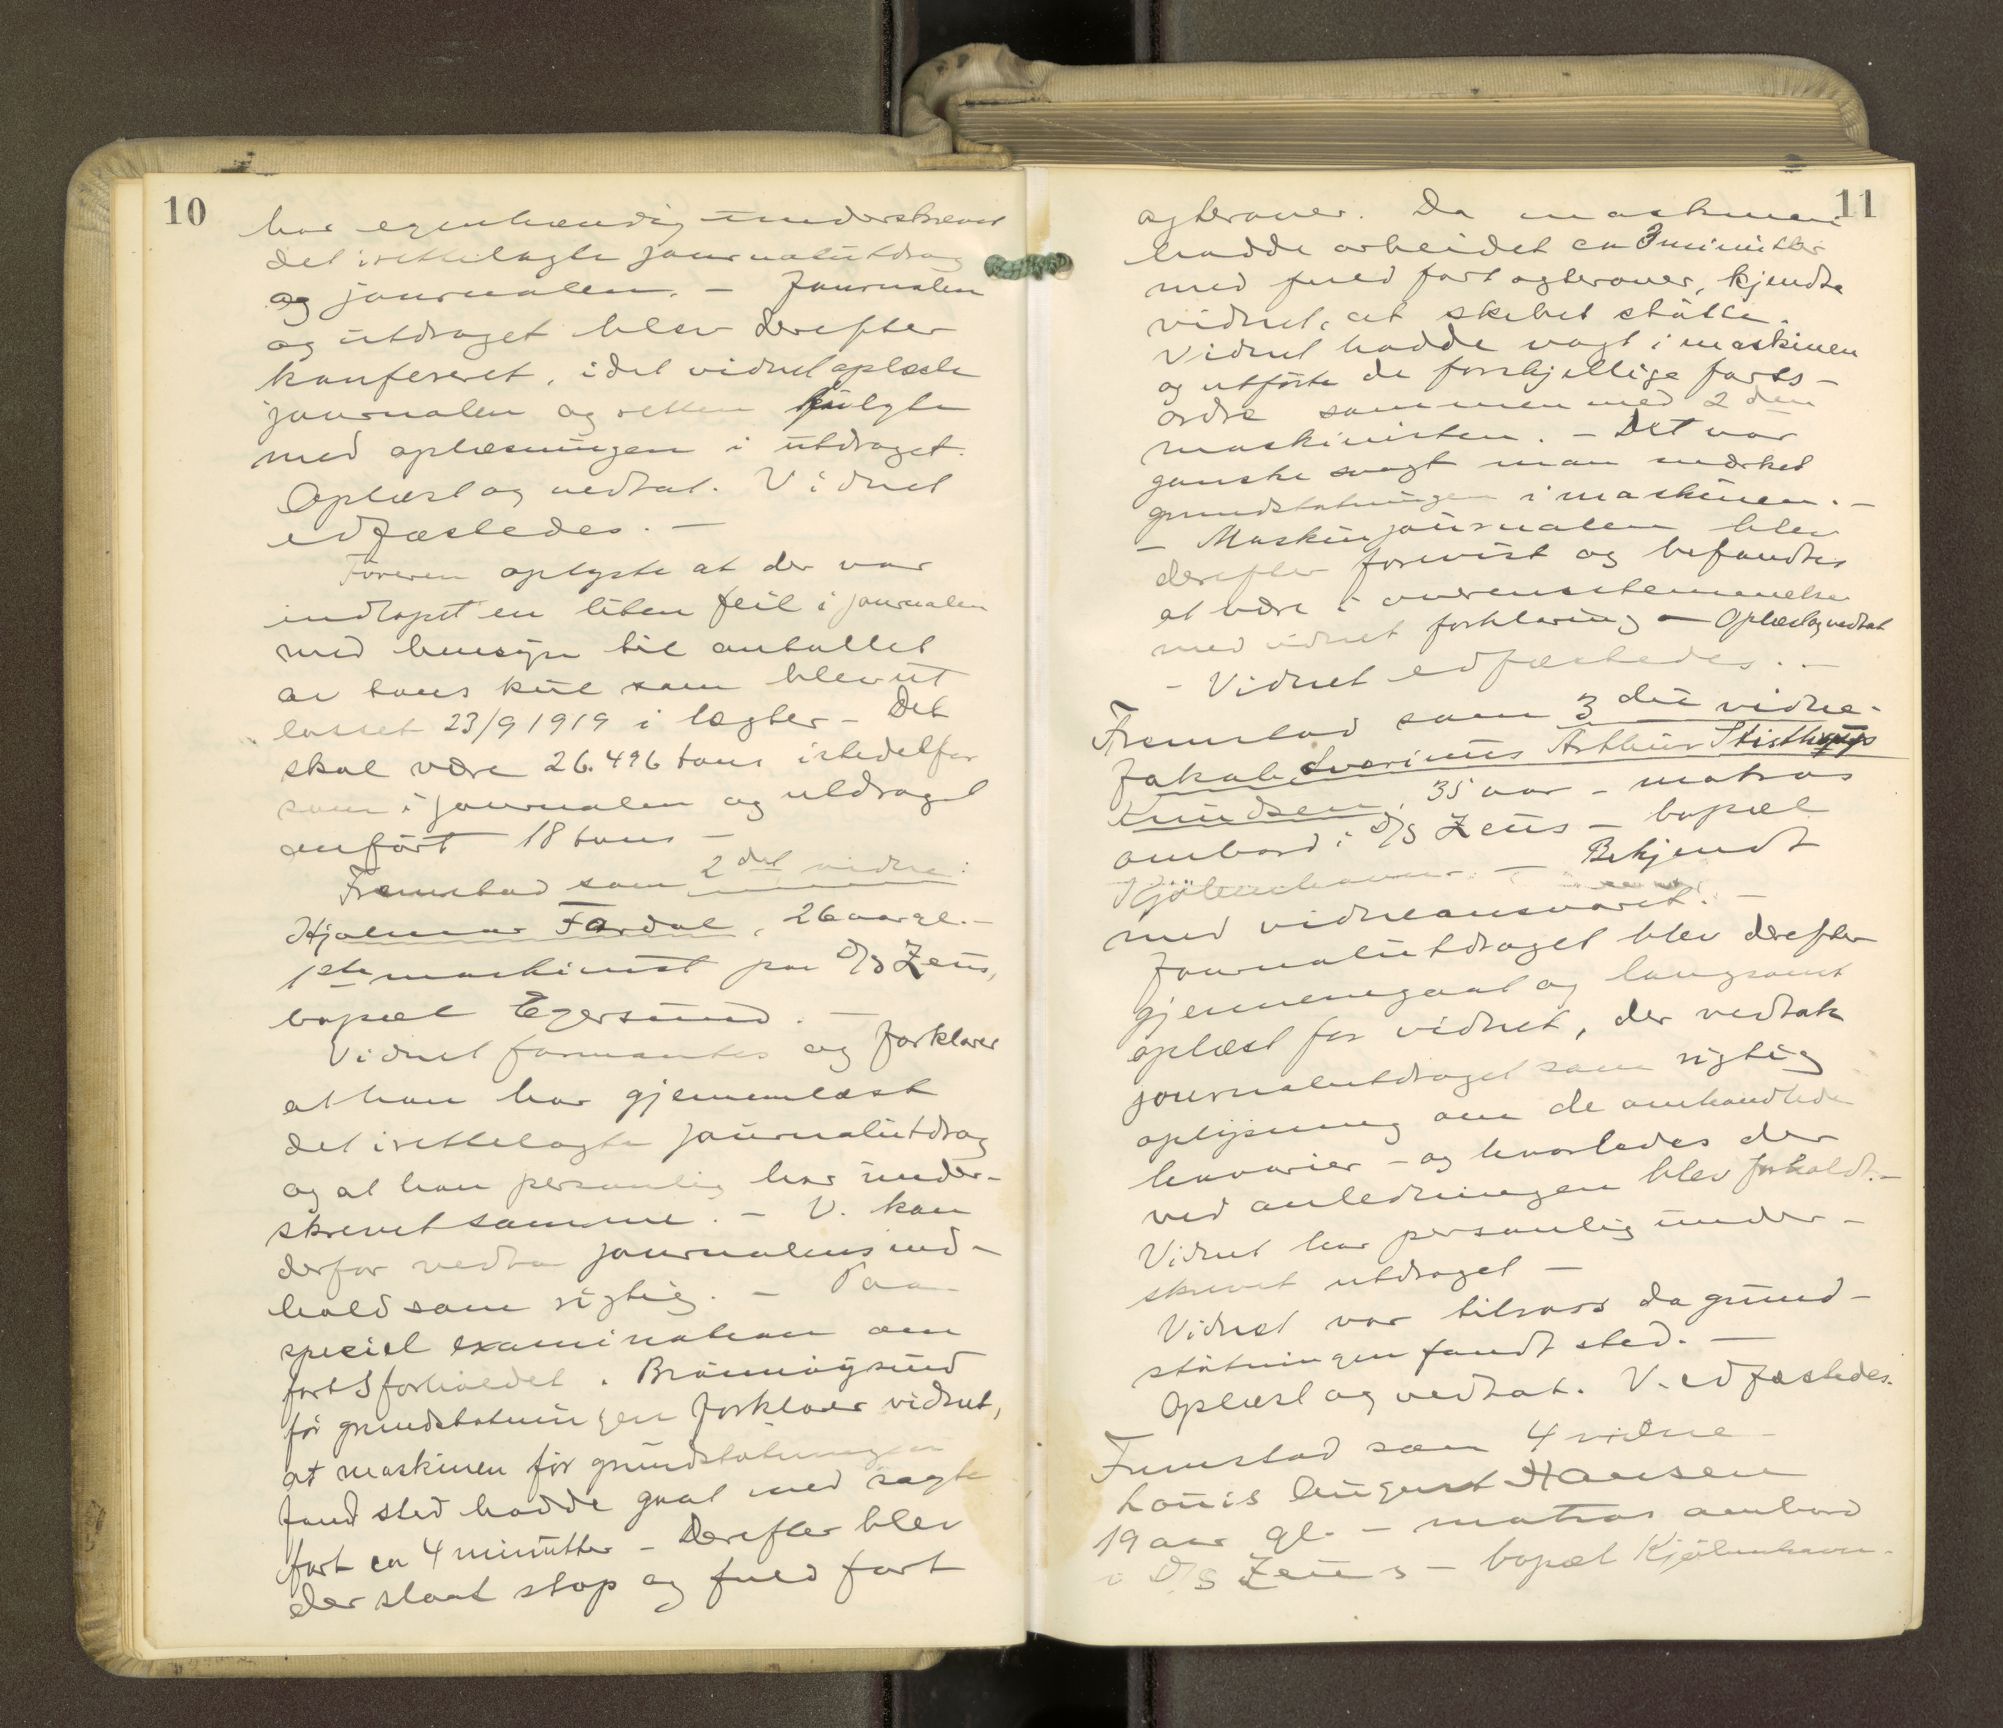 10
har egenhændig underskrevet
det irettelagte journalutdrag
og journalen. – Journalen
og utdraget blev derefter
konfereret, idet vidnet oplæste
journalen og retten fulgte
med oplæsningen i utdraget.
Oplæst og vedtat. Vidnet
edfæstedes. –
Føreren oplyste at der var
indløpet en liten feil i journalen
med hensyn til antallet
av tons kul som blev ut
losset 23/9 1919 i lægter – Det
skal være 26.496 tons istedetfor
som i journalen og utdraget
anført 18 tons –
Fremstod som 2det vidne:
Hjalmar Fardal, 26 aar gl. –
1ste maskinist paa D/S Zeus,
bopæl Egersund. –
Vidnet formantes og forklarer
at han har gjennemlæst
det irettelagte journalutdrag
og at han personlig har under-
skrevet samme. – V. kan
derfor vedta journalens ind-
hold som rigtig. – Paa
speciel examination om
fartsforholdet i Brønnøysund
før grundstøtningen forklarer vidnet,
at maskinen før grundstøtningen
fandt sted hadde gaat med sagte
fart ca 4 minutter – Derefter blev
der slaat stop og fuld fart
11
agterover. Da maskinen
hadde arbeidet ca 3 minutter
med fuld fart agterover, kjendte
vidnet, at skibet støtte.
Vidnet hadde vagt i maskinen
og utførte de forskjellige farts-
ordre sammen med 2den
maskinisten. – Det var
ganske svagt man mærket
grundstøtningen i maskinen. –
– Maskinjournalen blev
derefter forevist og befandtes
at være i overensstemmelse
med vidnets forklaring – Oplæst og vedtat
– Vidnet edfæstedes. –
Fremstod som 3die vidne –
Jakob Severinus Arthur
Knudsen, 35 aar – matros
ombord i D/S Zeus – bopæl
Kjøbenhavn. – Bekjendt
med vidneansvaret. –
Journalutdraget blev derefter
gjennemgaat og langsomt
oplæst for vidnet, der vedtok
journalutdraget som rigtig
oplysning om de omhandlede
havarier – og hvorledes der
ved anledningen blev forholdt. –
Vidnet har personlig under-
skrevet utdraget –
Vidnet var tilrors da grund-
støtningen fandt sted. –
Oplæst og vedtat. V. edfæstedes.
Fremstod som 4 vidne –
Louis August Hansen
19 aar gl. – matros ombord
i D/S Zeus – bopæl Kjøbenhavn. –